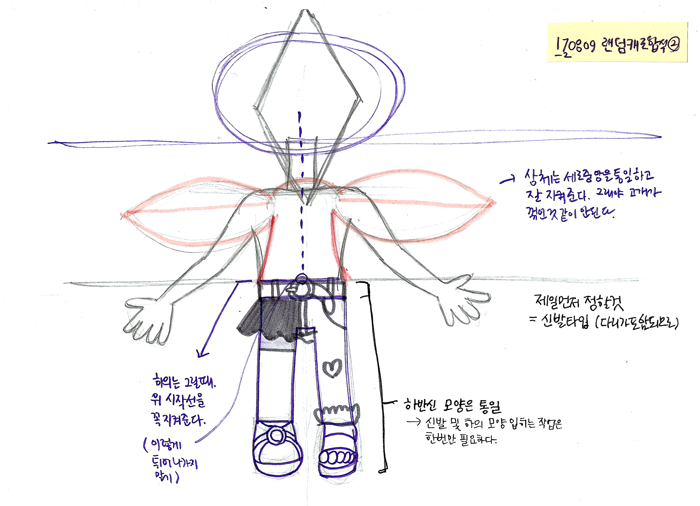 170809 랜덤캐로합작②
상체는 세로중앙을통일하고
잘 지켜준다. 그래야 고개가
꺾인것같이 안된다.
제일먼저 정할것
= 신발타입 (다리가포함되므로)
하의는 그릴때,
위 시작선을
꼭지켜준다.
(이렇게
튀어나가지
않기)
하반신 모양은 통일
→ 신발 및 하의 모양 입히는 작업은
한번만 필요하다.